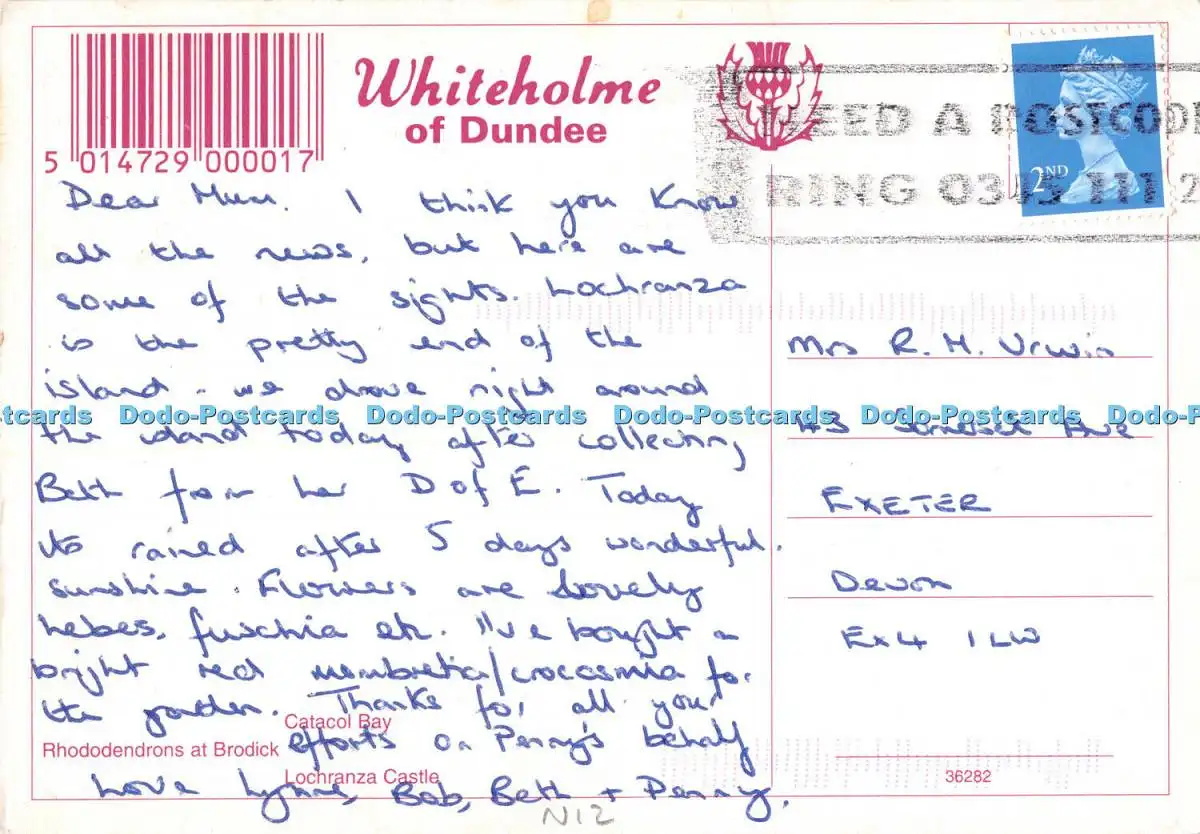 5 014729 000017
Whiteholme
of Dundee
NEED A POSTCODE
RING 0345 111 2
2ND
Dear Mum. I think you know
all the news, but here are
some of the sights. Lochranza
is the pretty end of the
island - we drove right around
the island today after collecting
Beth from her D of E. Today
its rained after 5 days wonderful
sunshine. Flowers are lovely
hebes, fuschia etc. I've bought a
bright red mombretia/crocosmia for
the garden. Thanks for all your
efforts on Penny's behalf
Love Lynne, Bob, Beth + Penny.
Mrs R. M. Urwin
43 Somerset Ave
EXETER
Devon
EX4 1LW
Catacol Bay
Rhododendrons at Brodick
Lochranza Castle
36282
N12
tcards Dodo-Postcards Dodo-Postcards Dodo-Postcards Dodo-Postcards Dodo-P